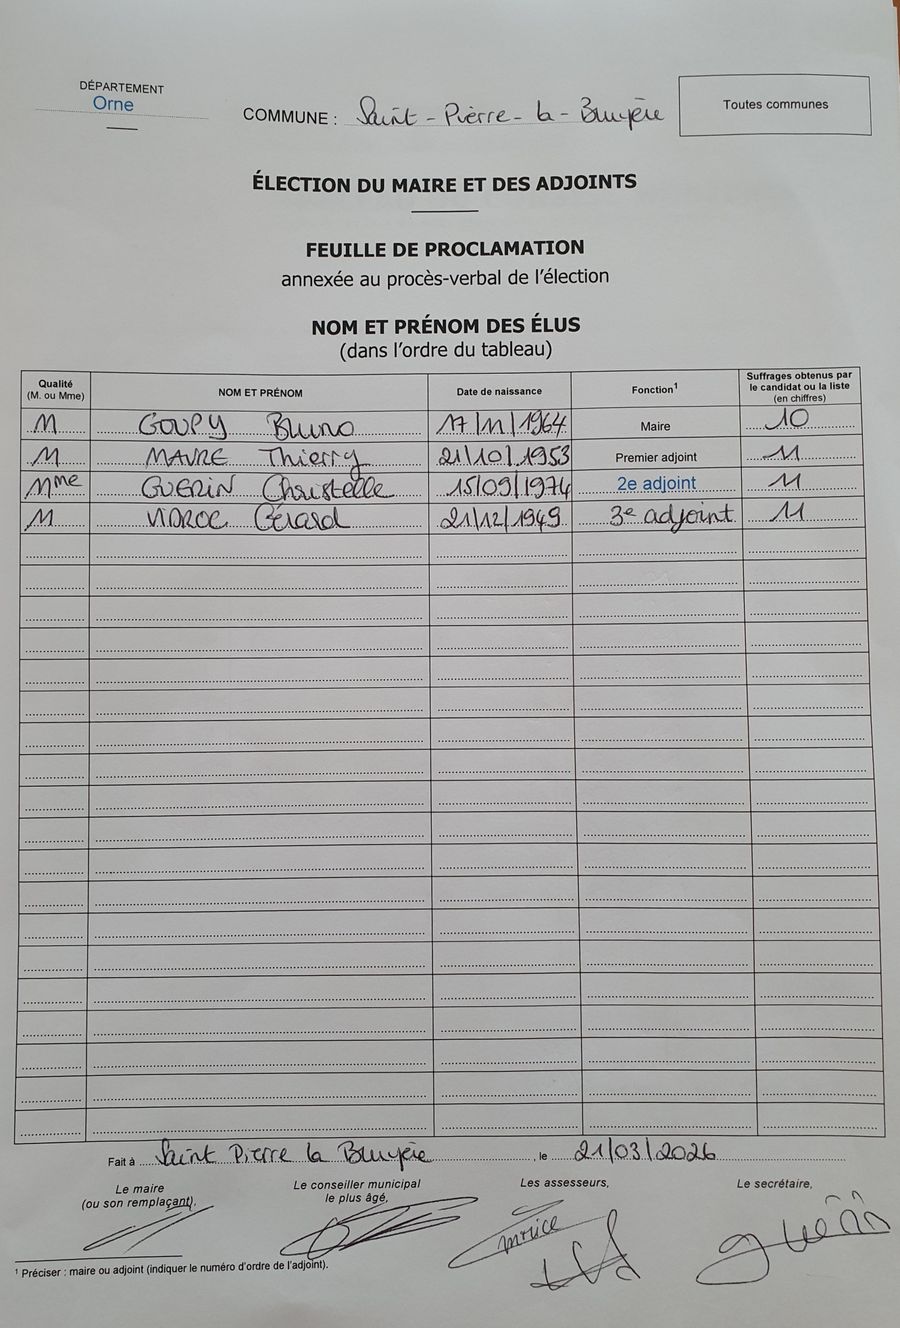 DÉPARTEMENT
Orne
COMMUNE : Saint-Pierre-la-Bruyère
Toutes communes
ÉLECTION DU MAIRE ET DES ADJOINTS
FEUILLE DE PROCLAMATION
annexée au procès-verbal de l'élection
NOM ET PRÉNOM DES ÉLUS
(dans l'ordre du tableau)
Qualité (M. ou Mme) NOM ET PRÉNOM Date de naissance Fonction¹ Suffrages obtenus par le candidat ou la liste (en chiffres)
M GOUPY Bruno 17/11/1964 Maire 10
M MAVRE Thierry 21/10/1953 Premier adjoint 11
Mme GUERIN Christelle 15/09/1974 2e adjoint 11
M Gérard 21/12/1949 3e adjoint 11
Fait à Saint Pierre la Bruyère, le 21/03/2026
Le maire (ou son remplaçant), Le conseiller municipal le plus âgé, Les assesseurs, Le secrétaire,
¹ Préciser : maire ou adjoint (indiquer le numéro d'ordre de l'adjoint).